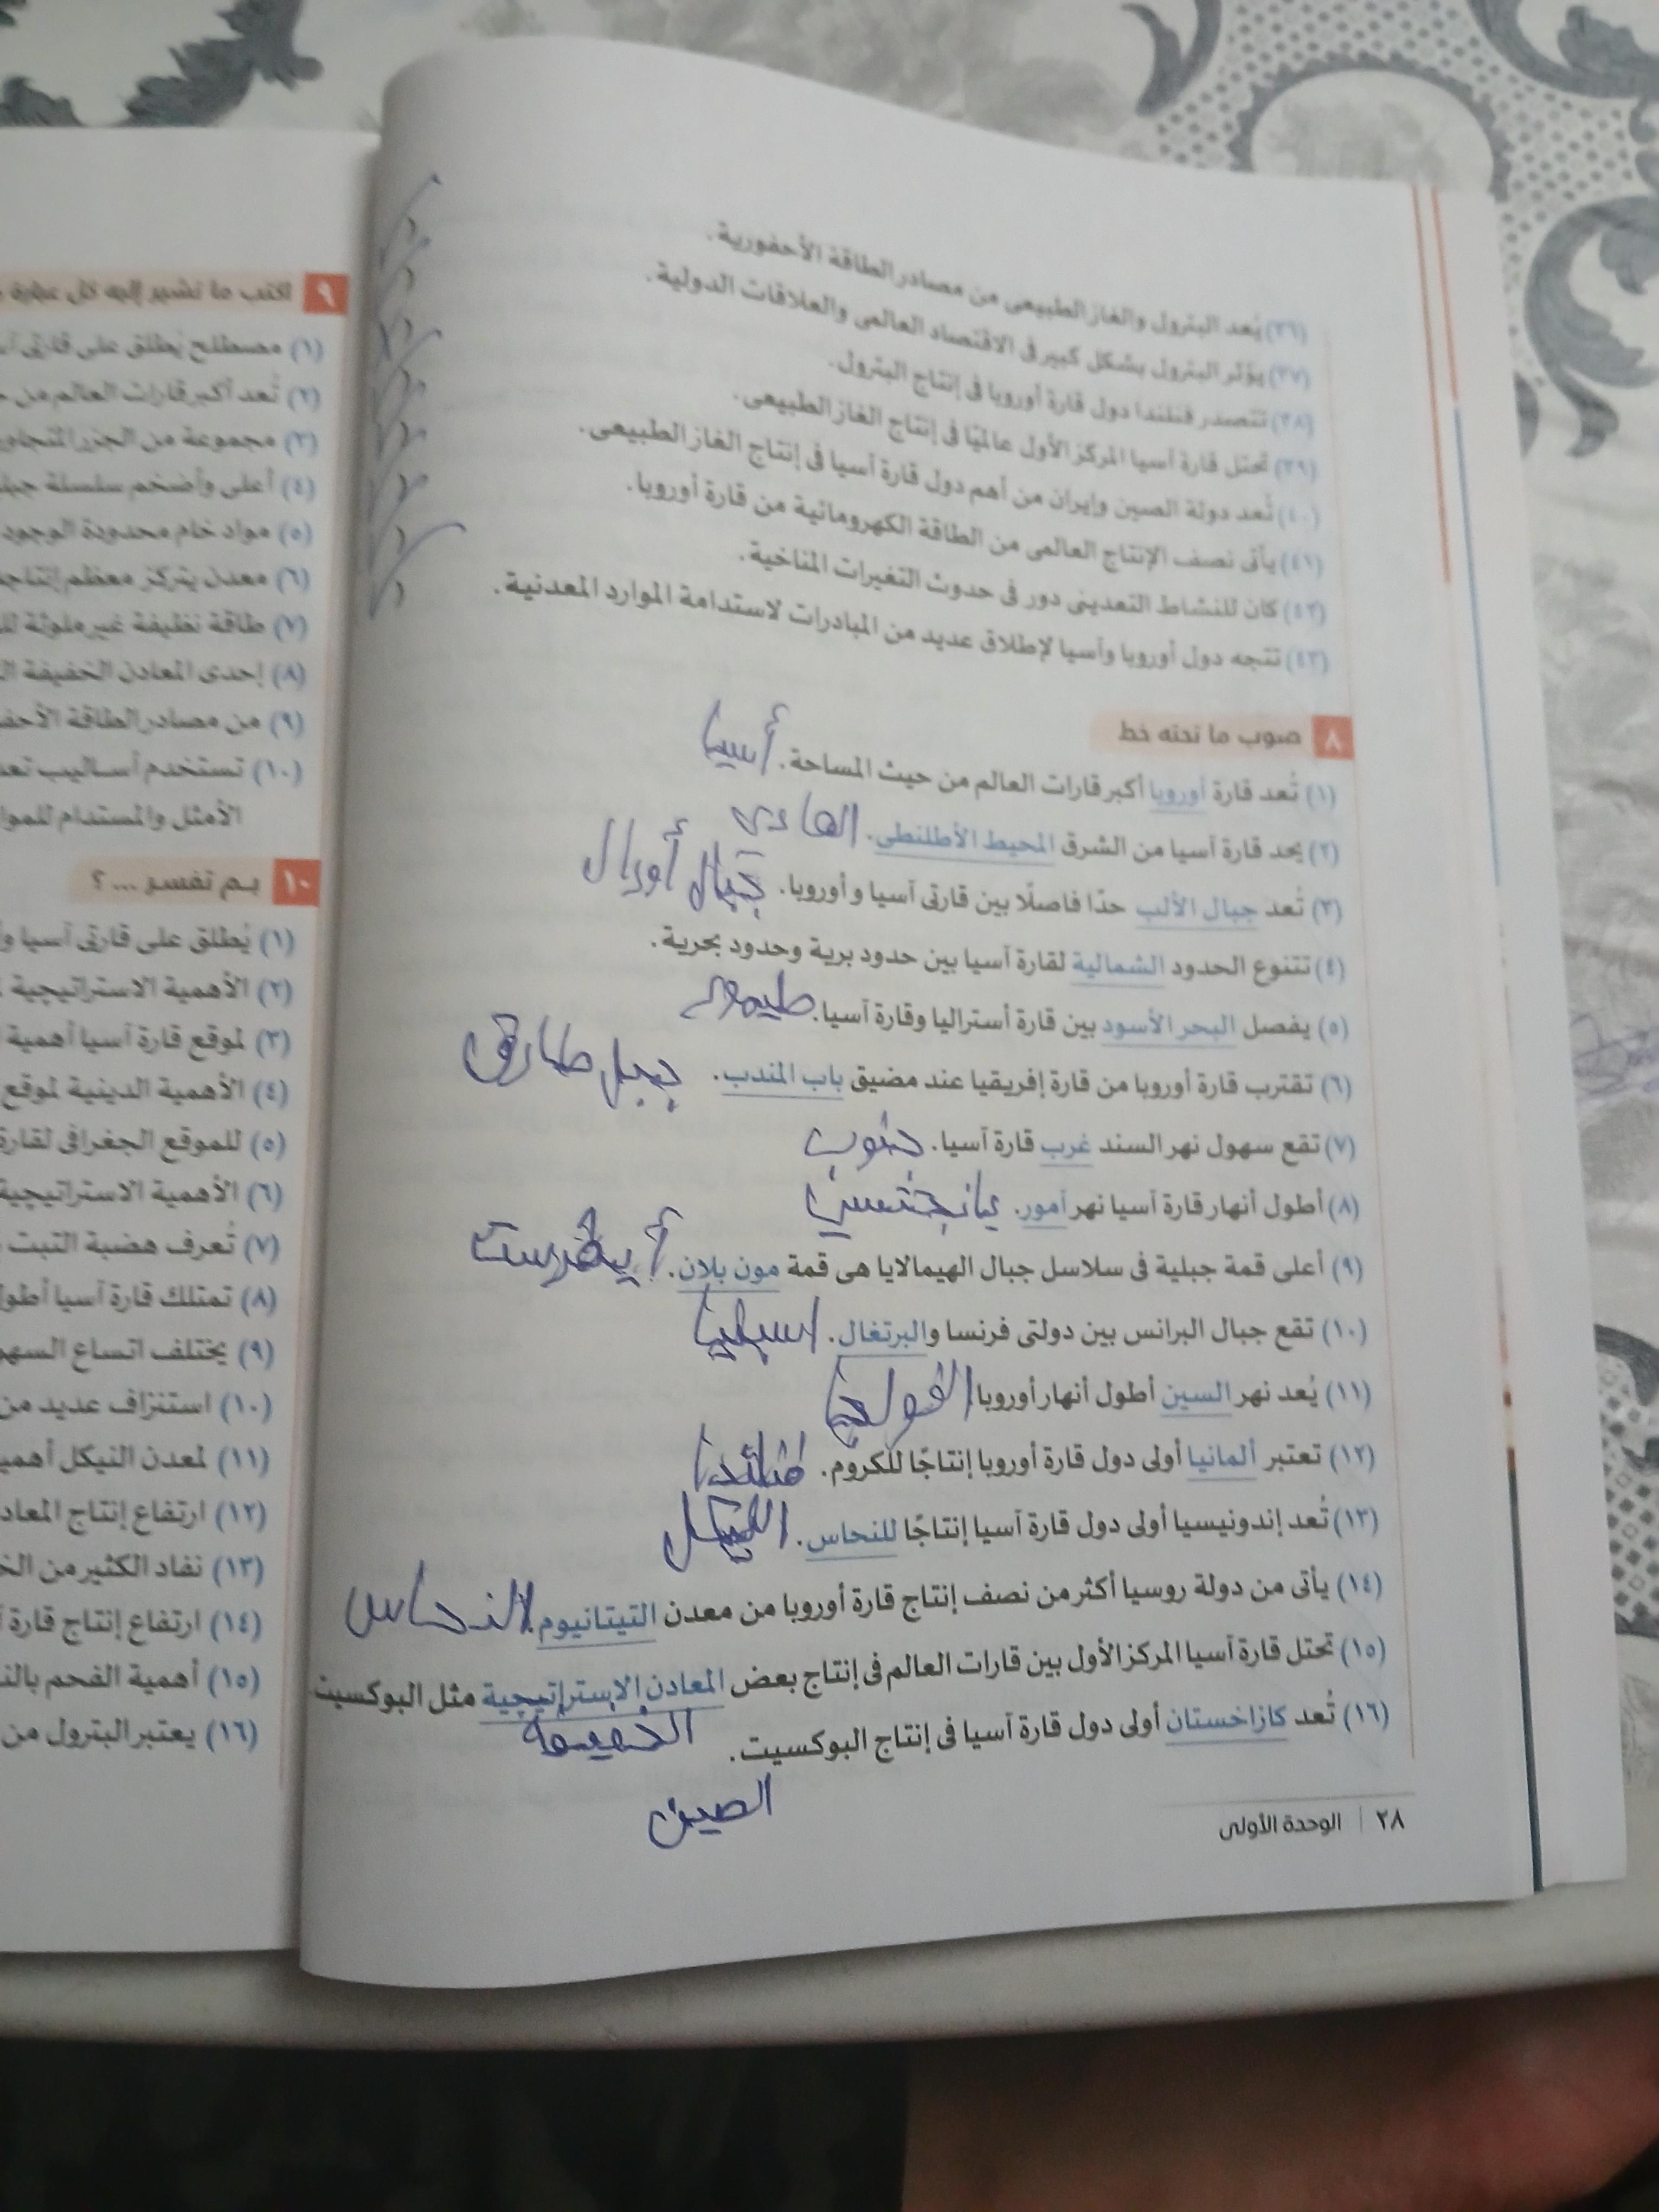 (٣٦) يُعد البترول والغاز الطبيعى من مصادر الطاقة الأحفورية.
(٣٧) يؤثر البترول بشكل كبير فى الاقتصاد العالمى والعلاقات الدولية.
(٣٨) تتصدر فنلندا دول قارة أوروبا فى إنتاج البترول.
(٣٩) تحتل قارة آسيا المركز الأول عالميًا فى إنتاج الغاز الطبيعى.
(٤٠) تُعد دولة الصين وإيران من أهم دول قارة آسيا فى إنتاج الغاز الطبيعى.
(٤١) يأتى نصف الإنتاج العالمى من الطاقة الكهرومائية من قارة أوروبا.
(٤٢) كان للنشاط التعدينى دور فى حدوث التغيرات المناخية.
(٤٣) تتجه دول أوروبا وآسيا لإطلاق عديد من المبادرات لاستدامة الموارد المعدنية.
٨ صوب ما تحته خط
(١) تُعد قارة أوروبا أكبر قارات العالم من حيث المساحة. أسيا
(٢) يحد قارة آسيا من الشرق المحيط الأطلنطى. الهادى
(٣) تُعد جبال الألب حدًا فاصلًا بين قارتى آسيا وأوروبا. جبال أورال
(٤) تتنوع الحدود الشمالية لقارة آسيا بين حدود برية وحدود بحرية.
(٥) يفصل البحر الأسود بين قارة أستراليا وقارة آسيا. طيمور
(٦) تقترب قارة أوروبا من قارة إفريقيا عند مضيق باب المندب. جبل طارق
(٧) تقع سهول نهر السند غرب قارة آسيا. جنوب
(٨) أطول أنهار قارة آسيا نهر آمور. يانجتسى
(٩) أعلى قمة جبلية فى سلاسل جبال الهيمالايا هى قمة مون بلان. أيفرست
(١٠) تقع جبال البرانس بين دولتى فرنسا والبرتغال. اسبانيا
(١١) يُعد نهر السين أطول أنهار أوروبا الفولجا
(١٢) تعتبر ألمانيا أولى دول قارة أوروبا إنتاجًا للكروم. فنلندا
(١٣) تُعد إندونيسيا أولى دول قارة آسيا إنتاجًا للنحاس. النيكل
(١٤) يأتى من دولة روسيا أكثر من نصف إنتاج قارة أوروبا من معدن التيتانيوم. النحاس
(١٥) تحتل قارة آسيا المركز الأول بين قارات العالم فى إنتاج بعض المعادن الإستراتيجية مثل البوكسيت
الخفيفة
(١٦) تُعد كازاخستان أولى دول قارة آسيا فى إنتاج البوكسيت.
الصين
٢٨ | الوحدة الأولى
٩ اكتب ما تشير إليه كل عبارة
(١) مصطلح يُطلق على قارتى
(٢) تُعد أكبر قارات العالم من
(٣) مجموعة من الجزر المتجاورة
(٤) أعلى وأضخم سلسلة
(٥) مواد خام محدودة الوجود
(٦) معدن يتركز معظم
(٧) طاقة نظيفة غير ملوثة
(٨) إحدى المعادن الخفيفة
(٩) من مصادر الطاقة
(١٠) تستخدم أساليب
الأمثل والمستدام
١٠ بم تفسر ... ؟
(١) يُطلق على قارتى آسيا
(٢) الأهمية الاستراتيجية
(٣) لموقع قارة آسيا أهمية
(٤) الأهمية الدينية لموقع
(٥) للموقع الجغرافى لقارة
(٦) الأهمية الاستراتيجية
(٧) تُعرف هضبة التبت
(٨) تمتلك قارة آسيا
(٩) يختلف اتساع
(١٠) استنزاف عديد من
(١١) لمعدن النيكل
(١٢) ارتفاع إنتاج
(١٣) نفاد الكثير من
(١٤) ارتفاع إنتاج قارة
(١٥) أهمية الفحم
(١٦) يعتبر البترول من